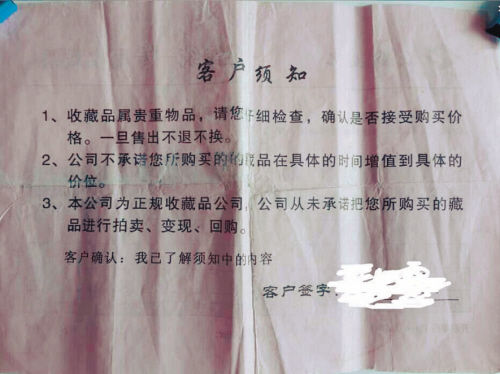 客户须知
1、收藏品属贵重物品，请您仔细检查，确认是否接受购买价
格。一旦售出不退不换。
2、公司不承诺您所购买的的藏品在具体的时间增值到具体的
价位。
3、本公司为正规收藏品公司，公司从未承诺把您所购买的藏
品进行拍卖、变现、回购。
客户确认：我已了解须知中的内容
客户签字：